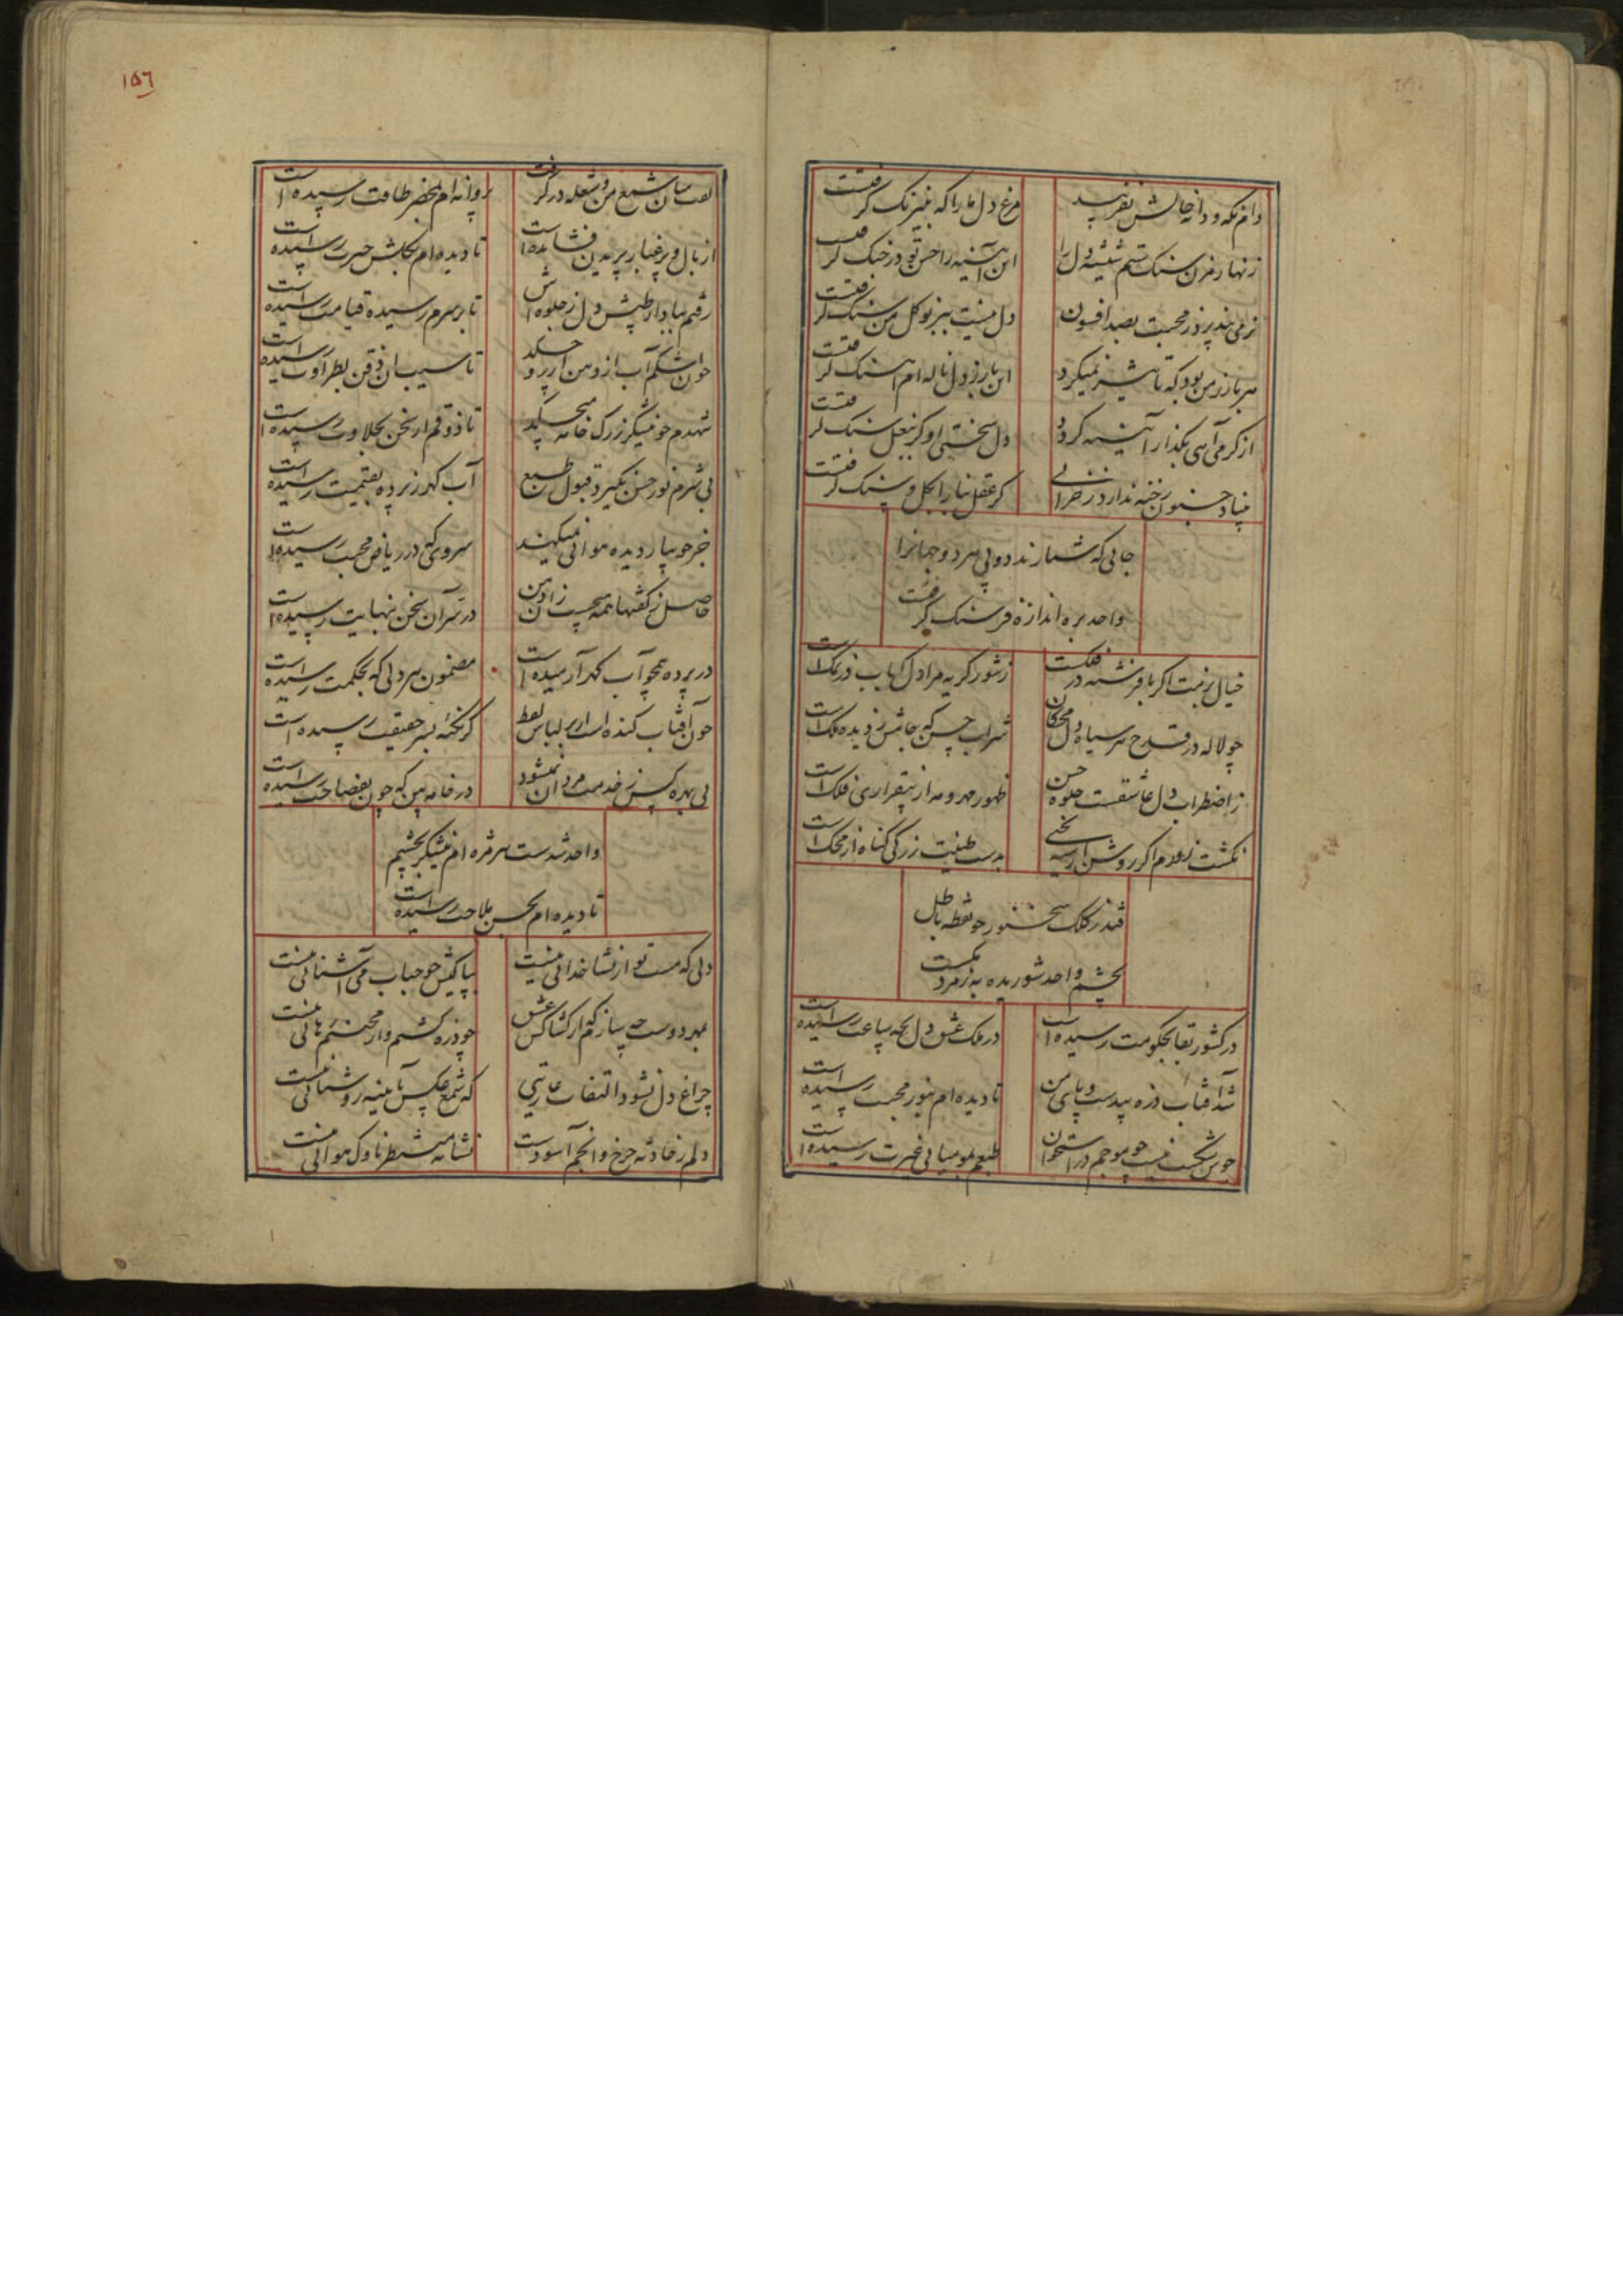 دام نکه و دانه خالش نفریبد
مرغ دل ما را که به نیرنگ گرفتست
زنهار مزن سنک ستم شیشه دل را
این آینه را حسن تو در چنک گرفتست
نرمی نپذیرد ز محبت بصد افسون
دل نیست ببر نوکل من سنک گرفتست
هر بار ز من بود که تاثیر نمیکرد
این بار ز دل ناله ام آهنک گرفتست
از گرمی آهی بگداز آینه گردد
دل سختی او گر ببغل سنک گرفتست
بنیاد جنون رخنه ندارد ز خرابی
گر عقل بنا را بگل و سنک گرفتست
جائی که شمارند دو پی هر دو جهانرا
واحد بره اندازه فرسنک گرفتست
خیال بزمت اگر با فرشته در فلکست
ز شور گریه مرا دل کباب در نمک است
چو لاله در قدح هر سیاه دل
شراب حسن که جامش ز دیده ملک است
ز اضطراب دل عاشقست جلوه حسن
ظهور مهر و مه از بیقراری فلک است
نکشت نادم اگر روشن از سیه بختی
بدست طینت زر کی گناه از محک است
فتد ز کلک سخنور چو نقطه باطل
بچشم واحد شوریده به ز مردمکست
در کشور بقا بحکومت رسیده است
در ملک عشق دل بچه ساعت رسیده است
شد آفتاب ذره بیدست و پای من
تا دیده ام بنور محبت رسیده است
چون شکست نیست چو موجم در استخوان
طبعم بمومیائی غیرت رسیده است
۱۵۶
لعب سان شمع من و شعله درگرفت
پروانه ام بخضر طاقت رسیده است
از بال و پر غبار پریدن فشانده است
تا دیده ام بجلوش حیرت رسیده است
رفتم بباد از طپش دل ز جلوه اش
تا بر سرم رسیده قیامت رسیده است
چون اشکم آب از دهن آرزو چکد
تا سیب آن ذقن بطراوت رسیده است
شهدم چو نیشکر ز رک خامه میچکد
تا ذوقم از سخن بحلاوت رسیده است
بی شرم نور حسن نگیرد قبول طبع
آب گهر ز پرده بقیمت رسیده است
خیر چو بیار دیده هوائی نمیکند
سروی که در ریاض محبت رسیده است
حاصل ز گفتها همه هیچست زان دهن
در سر آن سخن بنهایت رسیده است
در پرده همچو آب گهر آرمیده است
مضمون هر دلی که بحکمت رسیده است
چون آفتاب کنده است از بر لباس لفظ
گر نکته بسر حقیقت رسیده است
بی بهره کس ز خدمت مردان نمیشود
در خامه بین که چون بفصاحت رسیده است
واحد شدست هر مژه ام نیشکر بچشم
تا دیده ام بحسن ملاحت رسیده است
دلی که مست تو از نشا خدائی نیست
بپاکیش چو حباب می آشنائی نیست
بمهر دوست چه سازم که از کشاکش عشق
چو ذره کشتم و از محنتم رهائی نیست
چراغ دل نشود التفات عاریتی
که شمع عکس بآیینه روشنائی نیست
دلم ز حادثه چرخ و انجم آسودست
نشانه منتظر ناوک هوائی نیست